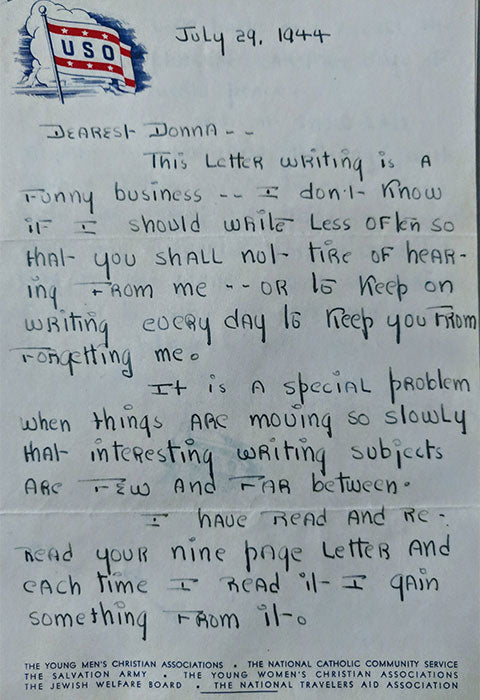 USO
July 29, 1944
Dearest Donna --
This letter writing is a
funny business -- I don't know
if I should write less often so
that you shall not tire of hear-
ing from me -- or to keep on
writing every day to keep you from
forgetting me.
It is a special problem
when things are moving so slowly
that interesting writing subjects
are few and far between.
I have read and re-
read your nine page letter and
each time I read it I gain
something from it.
THE YOUNG MEN'S CHRISTIAN ASSOCIATIONS • THE NATIONAL CATHOLIC COMMUNITY SERVICE
THE SALVATION ARMY • THE YOUNG WOMEN'S CHRISTIAN ASSOCIATIONS
THE JEWISH WELFARE BOARD • THE NATIONAL TRAVELERS AID ASSOCIATION